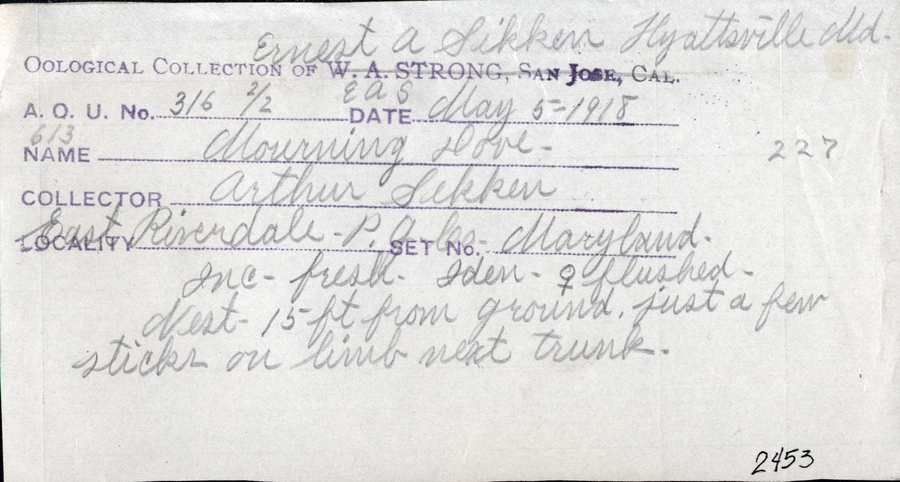 Ernest A Sikken Hyattsville Md.
OOLOGICAL COLLECTION OF W. A. STRONG, SAN JOSE, CAL.
E A S
A. O. U. No. 316 2/2 DATE May 5-1918
613
NAME Mourning Dove- 227
COLLECTOR Arthur Sikken
LOCALITY East Riverdale-P. G. Co- SET No. Maryland.
Inc- fresh. Iden- ♀ flushed-
Nest- 15 ft from ground. just a few
sticks on limb next trunk.
2453